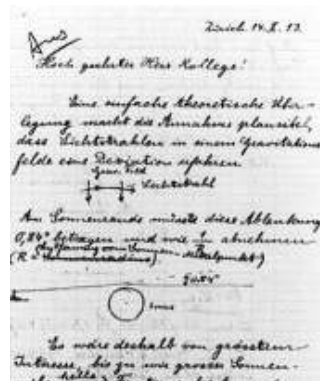 Zürich. 14. X. 13.
Hoch geehrter Herr Kollege!
Eine einfache theoretische Über-
legung macht die Annahme plausibel,
dass Lichtstrahlen in einem Gravitations
felde eine Deviation erfahren.
Grav. Feld
Lichtstrahl
Am Sonnenrande müsste diese Ablenkung
0,84" betragen und wie 1/R abnehmen
(R = Sonnenradius) Mittelpunkt)
0,84"
Sonne
Es wäre deshalb von grösstem
Interesse, bis zu wie grosser Sonnen-